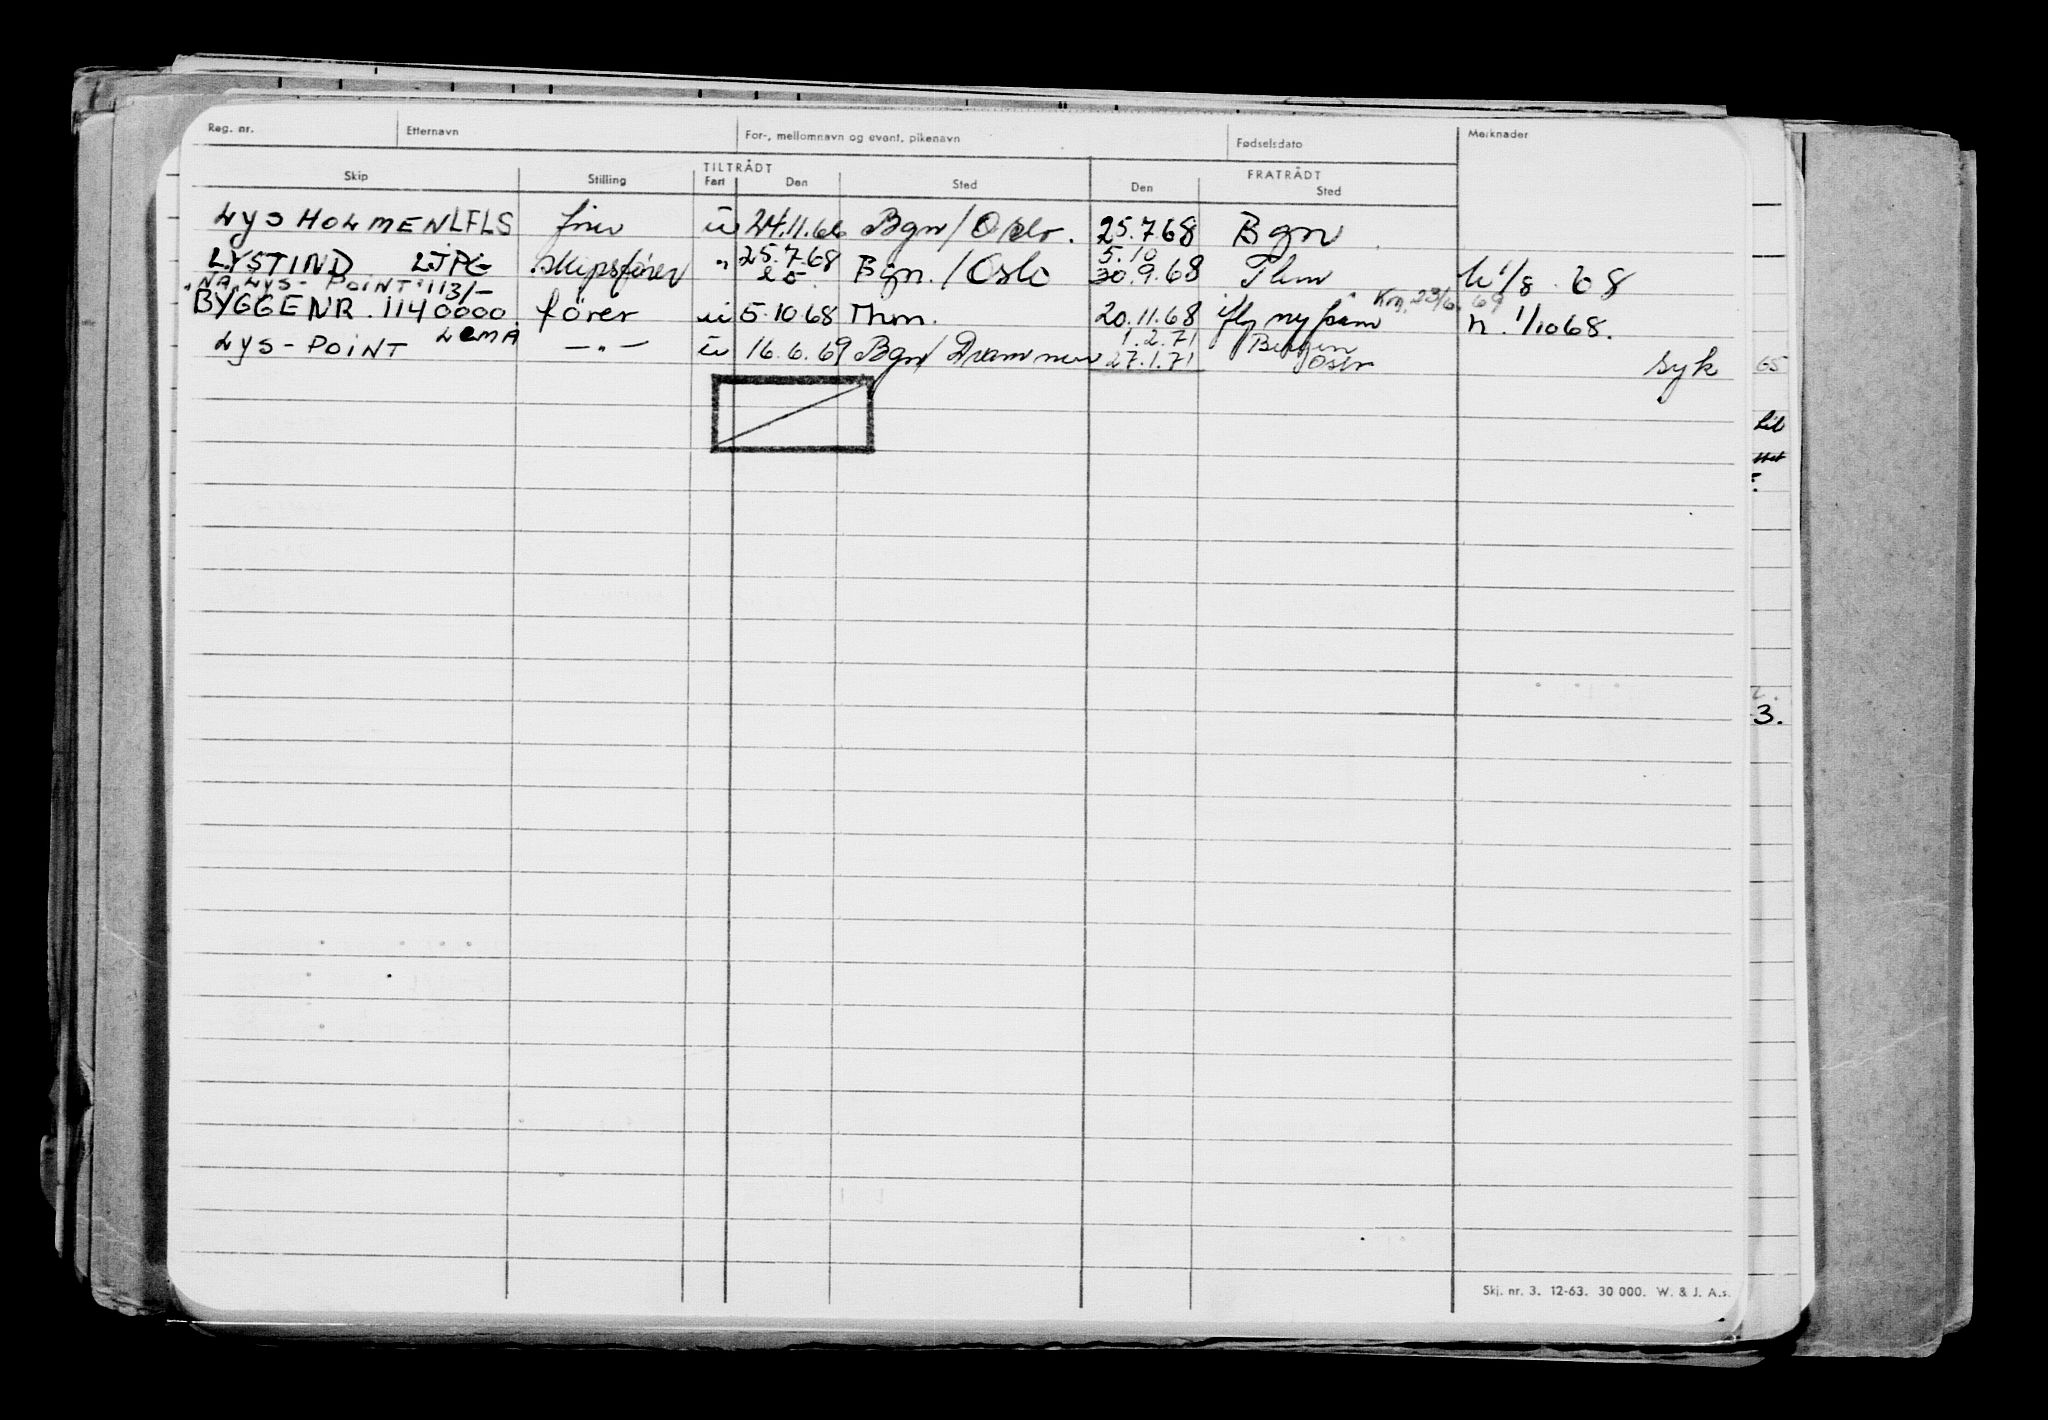 Reg. nr. Etternavn For-, mellomnavn og event. pikenavn Fødselsdato Merknader
TILTRÅDT FRATRÅDT
Skip Stilling Fart Den Sted Den Sted
LYSHOLMEN LFLS fører u 24.11.66 Bgn/Oslo. 25.7.68 Bgn
LYSTIND LJPG skipsfører " 25.7.68 Bgn./Oslo 5.10 30.9.68 Thm h 1/8 68
"NÅ LYS-POINT" 113/-
BYGGENR. 1140000 fører u 5.10.68 Thm. 20.11.68 ifly ny Kon. 23/6.69 h. 1/10 68.
LYS-POINT LEMA —"— u 16.6.69 Bgn/Drammen 1.2.71 Bergen
27.1.71 Oslo syk
65
3.
Skj. nr. 3. 12-63. 30 000. W. & J. A.s.